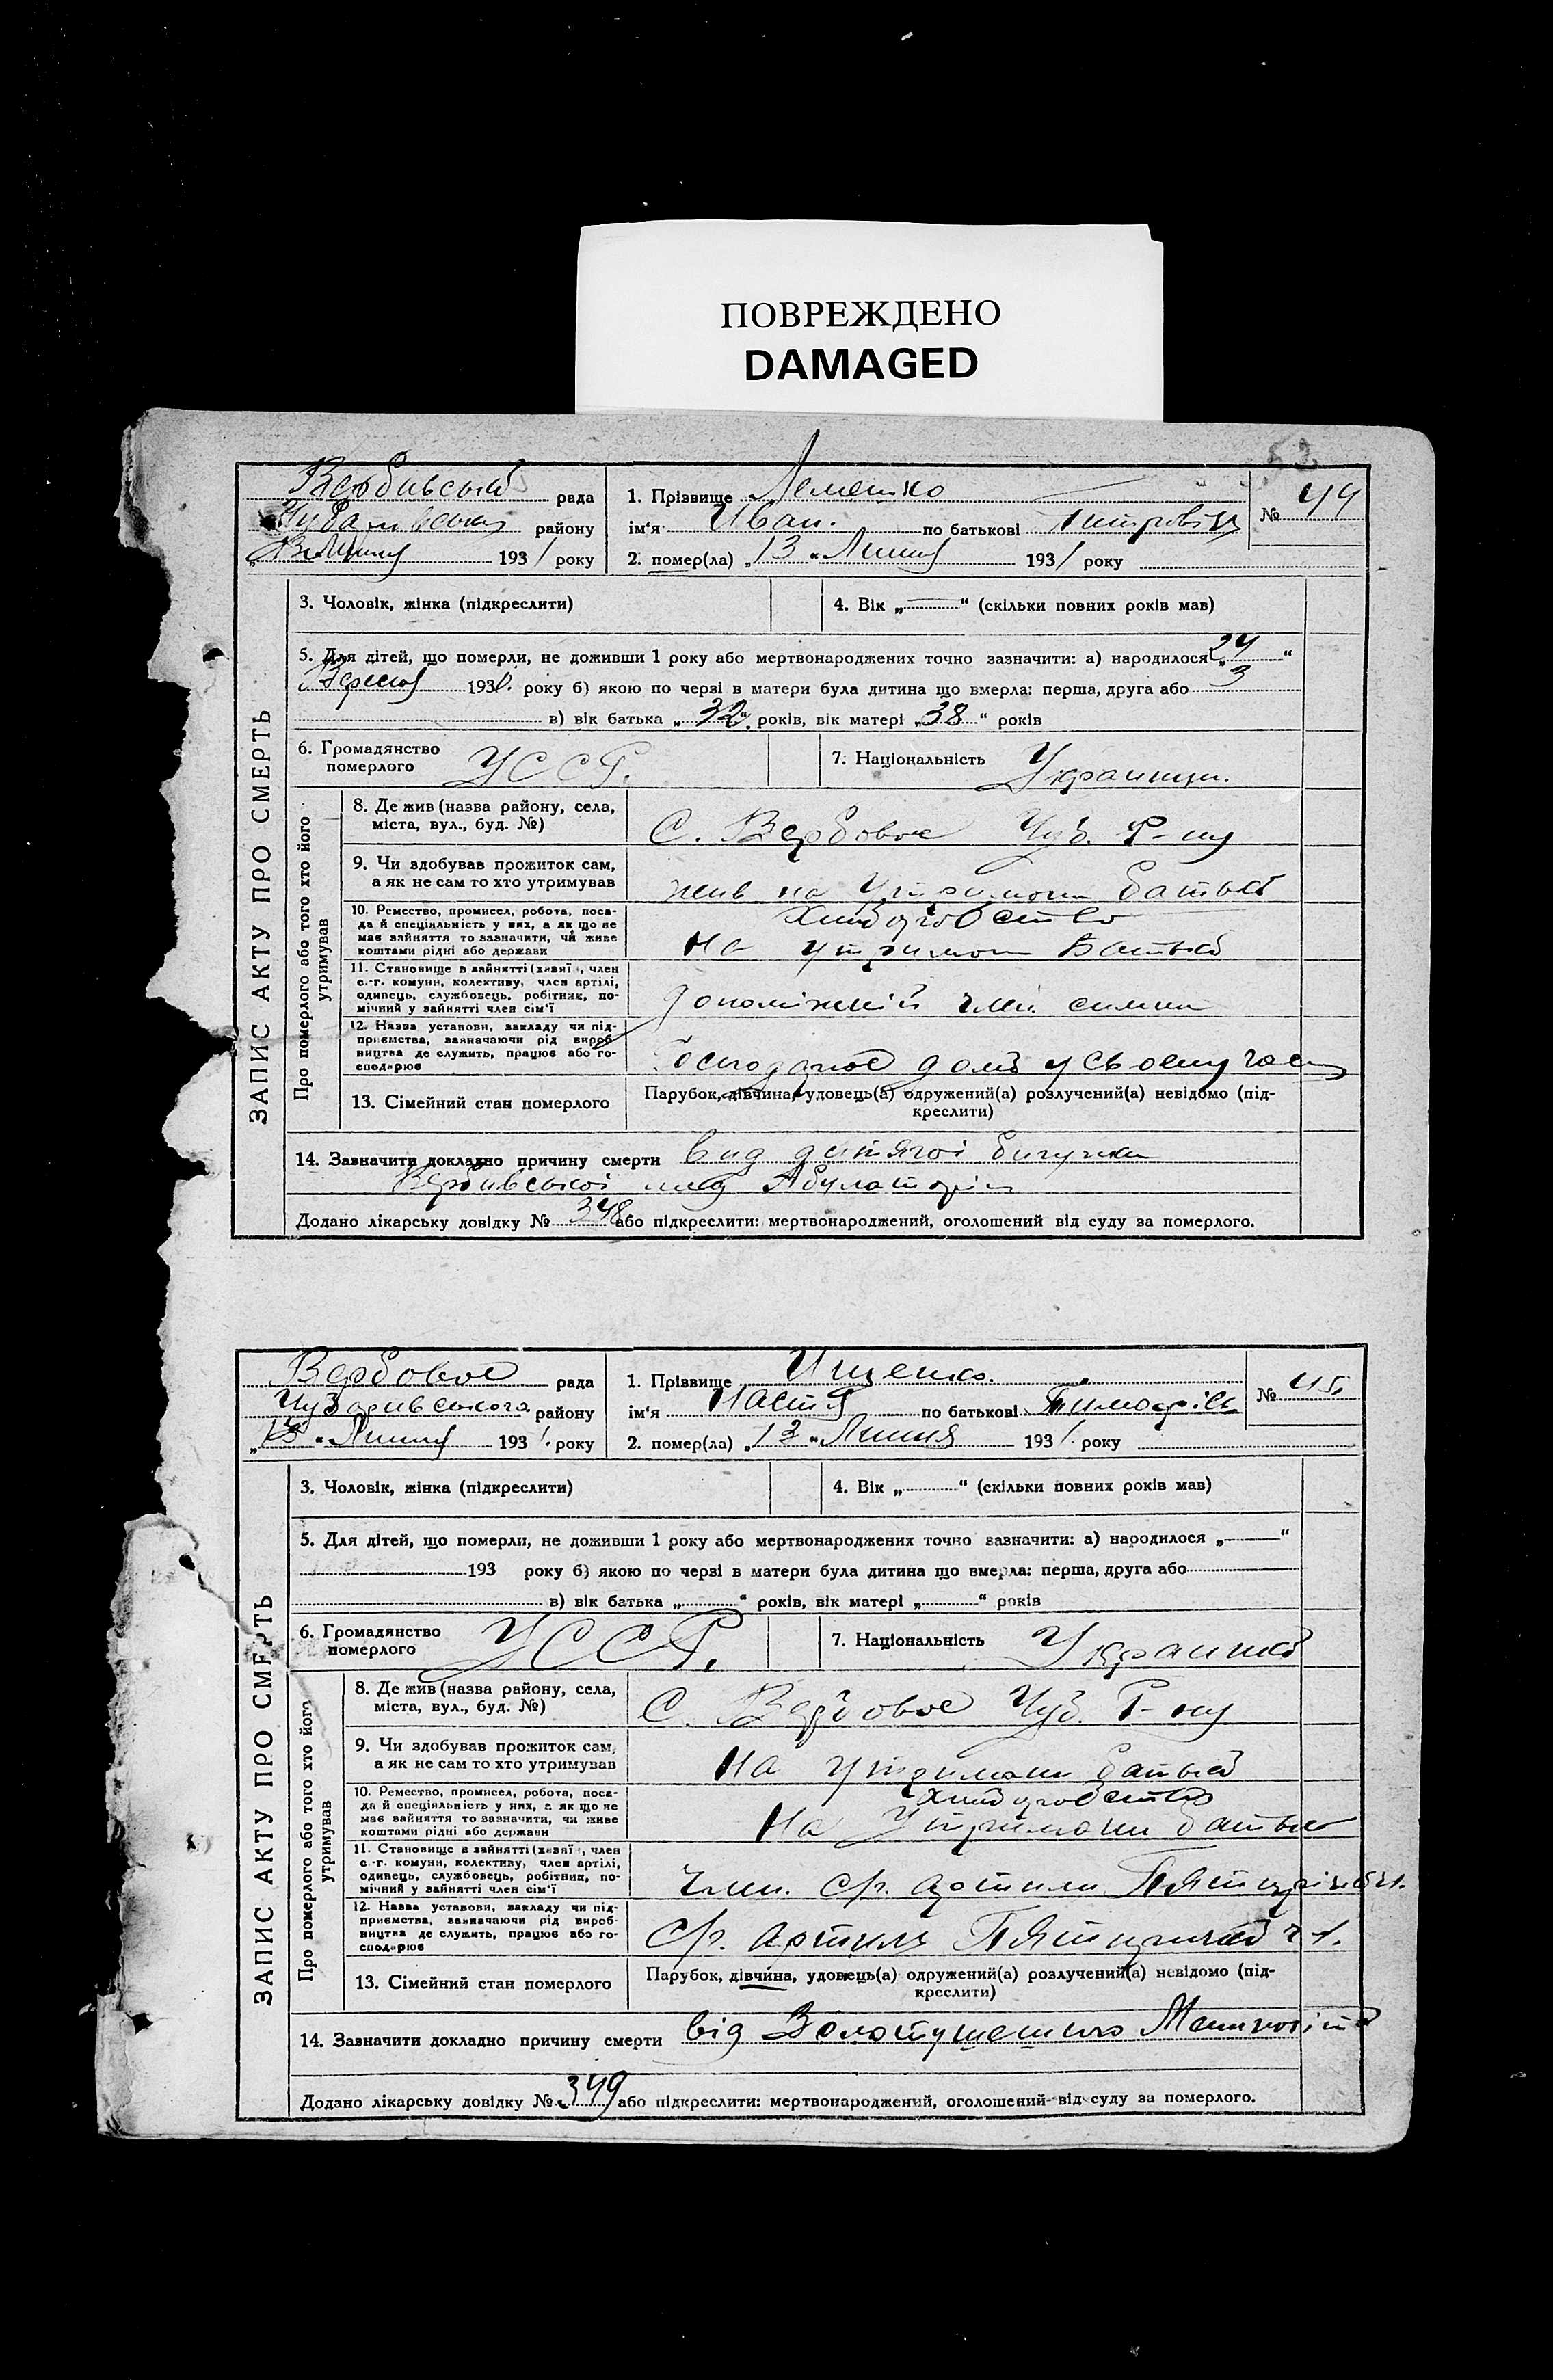 ПОВРЕЖДЕНО
DAMAGED
52
Вербивський рада
Чубарівський району
„13 Липня 1931 року
1. Прізвище Лемешко
ім'я Иван. по батькові Петровіч
2. помер(ла) „13“ Липня 1931 року
№ 44
ЗАПИС АКТУ ПРО СМЕРТЬ
3. Чоловік, жінка (підкреслити)
4. Вік „ “ (скільки повних років мав)
5. Для дітей, що померли, не доживши 1 року або мертвонароджених точно зазначити: а) народилося „24“
Вересня 1930. року б) якою по черзі в матери була дитина що вмерла: перша, друга або 3
в) вік батька „32“ років, вік матері „38“ років
6. Громадянство
померлого
УССР.
7. Національність Украинци.
Про померлого або того хто його
утримував
8. Де жив (назва району, села,
міста, вул., буд. №)
С. Вербовое Чуб. Р-ну
9. Чи здобував прожиток сам,
а як не сам то хто утримував
жив на утримани батька
10. Ремество, промисел, робота, поса-
да й спеціяльність у них, а як що не
має зайняття то зазначити, чи живе
коштами рідні або держави
Хлиборобство
на утриман Батька
11. Становище в зайнятті (хазяїн, член
с.-г. комуни, колективу, член артілі,
одинець, службовець, робітник, по-
мічний у зайнятті член сім'ї
допоміжний член симии
12. Назва установи, закладу чи під-
приємства, зазначаючи рід вироб-
ництва де служить, працює або го-
сподарює
Господарює дома у своему
13. Сімейний стан померлого
Парубок, дівчина, удовець(а) одружений(а) розлучений(а) невідомо (під-
креслити)
14. Зазначити докладно причину смерти вид дитячої
Вербивської мед Абулаторіи
Додано лікарську довідку № 348 або підкреслити: мертвонароджений, оголошений від суду за померлого.
Вербовое рада
Чубаривського району
„13“ Липня 1931. року
1. Прізвище Ищенко.
ім'я Настя по батькові Тимофіев
2. помер(ла) „13“ Липня 1931 року
№ 45
ЗАПИС АКТУ ПРО СМЕРТЬ
3. Чоловік, жінка (підкреслити)
4. Вік „ “ (скільки повних років мав)
5. Для дітей, що померли, не доживши 1 року або мертвонароджених точно зазначити: а) народилося „ “
193 року б) якою по черзі в матери була дитина що вмерла: перша, друга або
в) вік батька „ “ років, вік матері „ “ років
6. Громадянство
померлого
УССР.
7. Національність Украинка
Про померлого або того хто його
утримував
8. Де жив (назва району, села,
міста, вул., буд. №)
С. Вербовое Чуб. Р-ну
9. Чи здобував прожиток сам,
а як не сам то хто утримував
На утримани батька
10. Ремество, промисел, робота, поса-
да й спеціяльність у них, а як що не
має зайняття то зазначити, чи живе
коштами рідні або держави
Хлиборобство
На Утримани батька
11. Становище в зайнятті (хазяїн, член
с.-г. комуни, колективу, член артілі,
одинець, службовець, робітник, по-
мічний у зайнятті член сім'ї
член. с/г. артили Пятирічка
12. Назва установи, закладу чи під-
приємства, зазначаючи рід вироб-
ництва де служить, працює або го-
сподарює
с/г. артиль Пятиричка ч 1.
13. Сімейний стан померлого
Парубок, дівчина, удовець(а) одружений(а) розлучений(а) невідомо (під-
креслити)
14. Зазначити докладно причину смерти від Золотушешного Менингіта
Додано лікарську довідку № 349 або підкреслити: мертвонароджений, оголошений від суду за померлого.